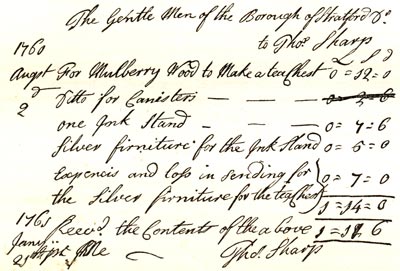 The Gentle Men of the Borough of Stratford Dr.
to Thos. Sharp
1760 £ s d
Augst For Mulberry Wood to Make a tea Chest 0=12=0
2d Ditto for Canisters — — — 0=2=6
one Ink Stand - - - — 0=7=6
Silver firniture for the Ink Stand 0=5=0
Expencis and loss in sending for
the Silver firniture for the tea Chest } 0=7=0
1=14=0
1761 Receivd the Contents of the above 1=12 6
Janry
21st pr Me — Thos. Sharp